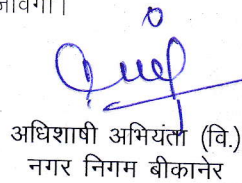 जावेगी।
अधिशाषी अभियंता (वि.)
नगर निगम बीकानेर